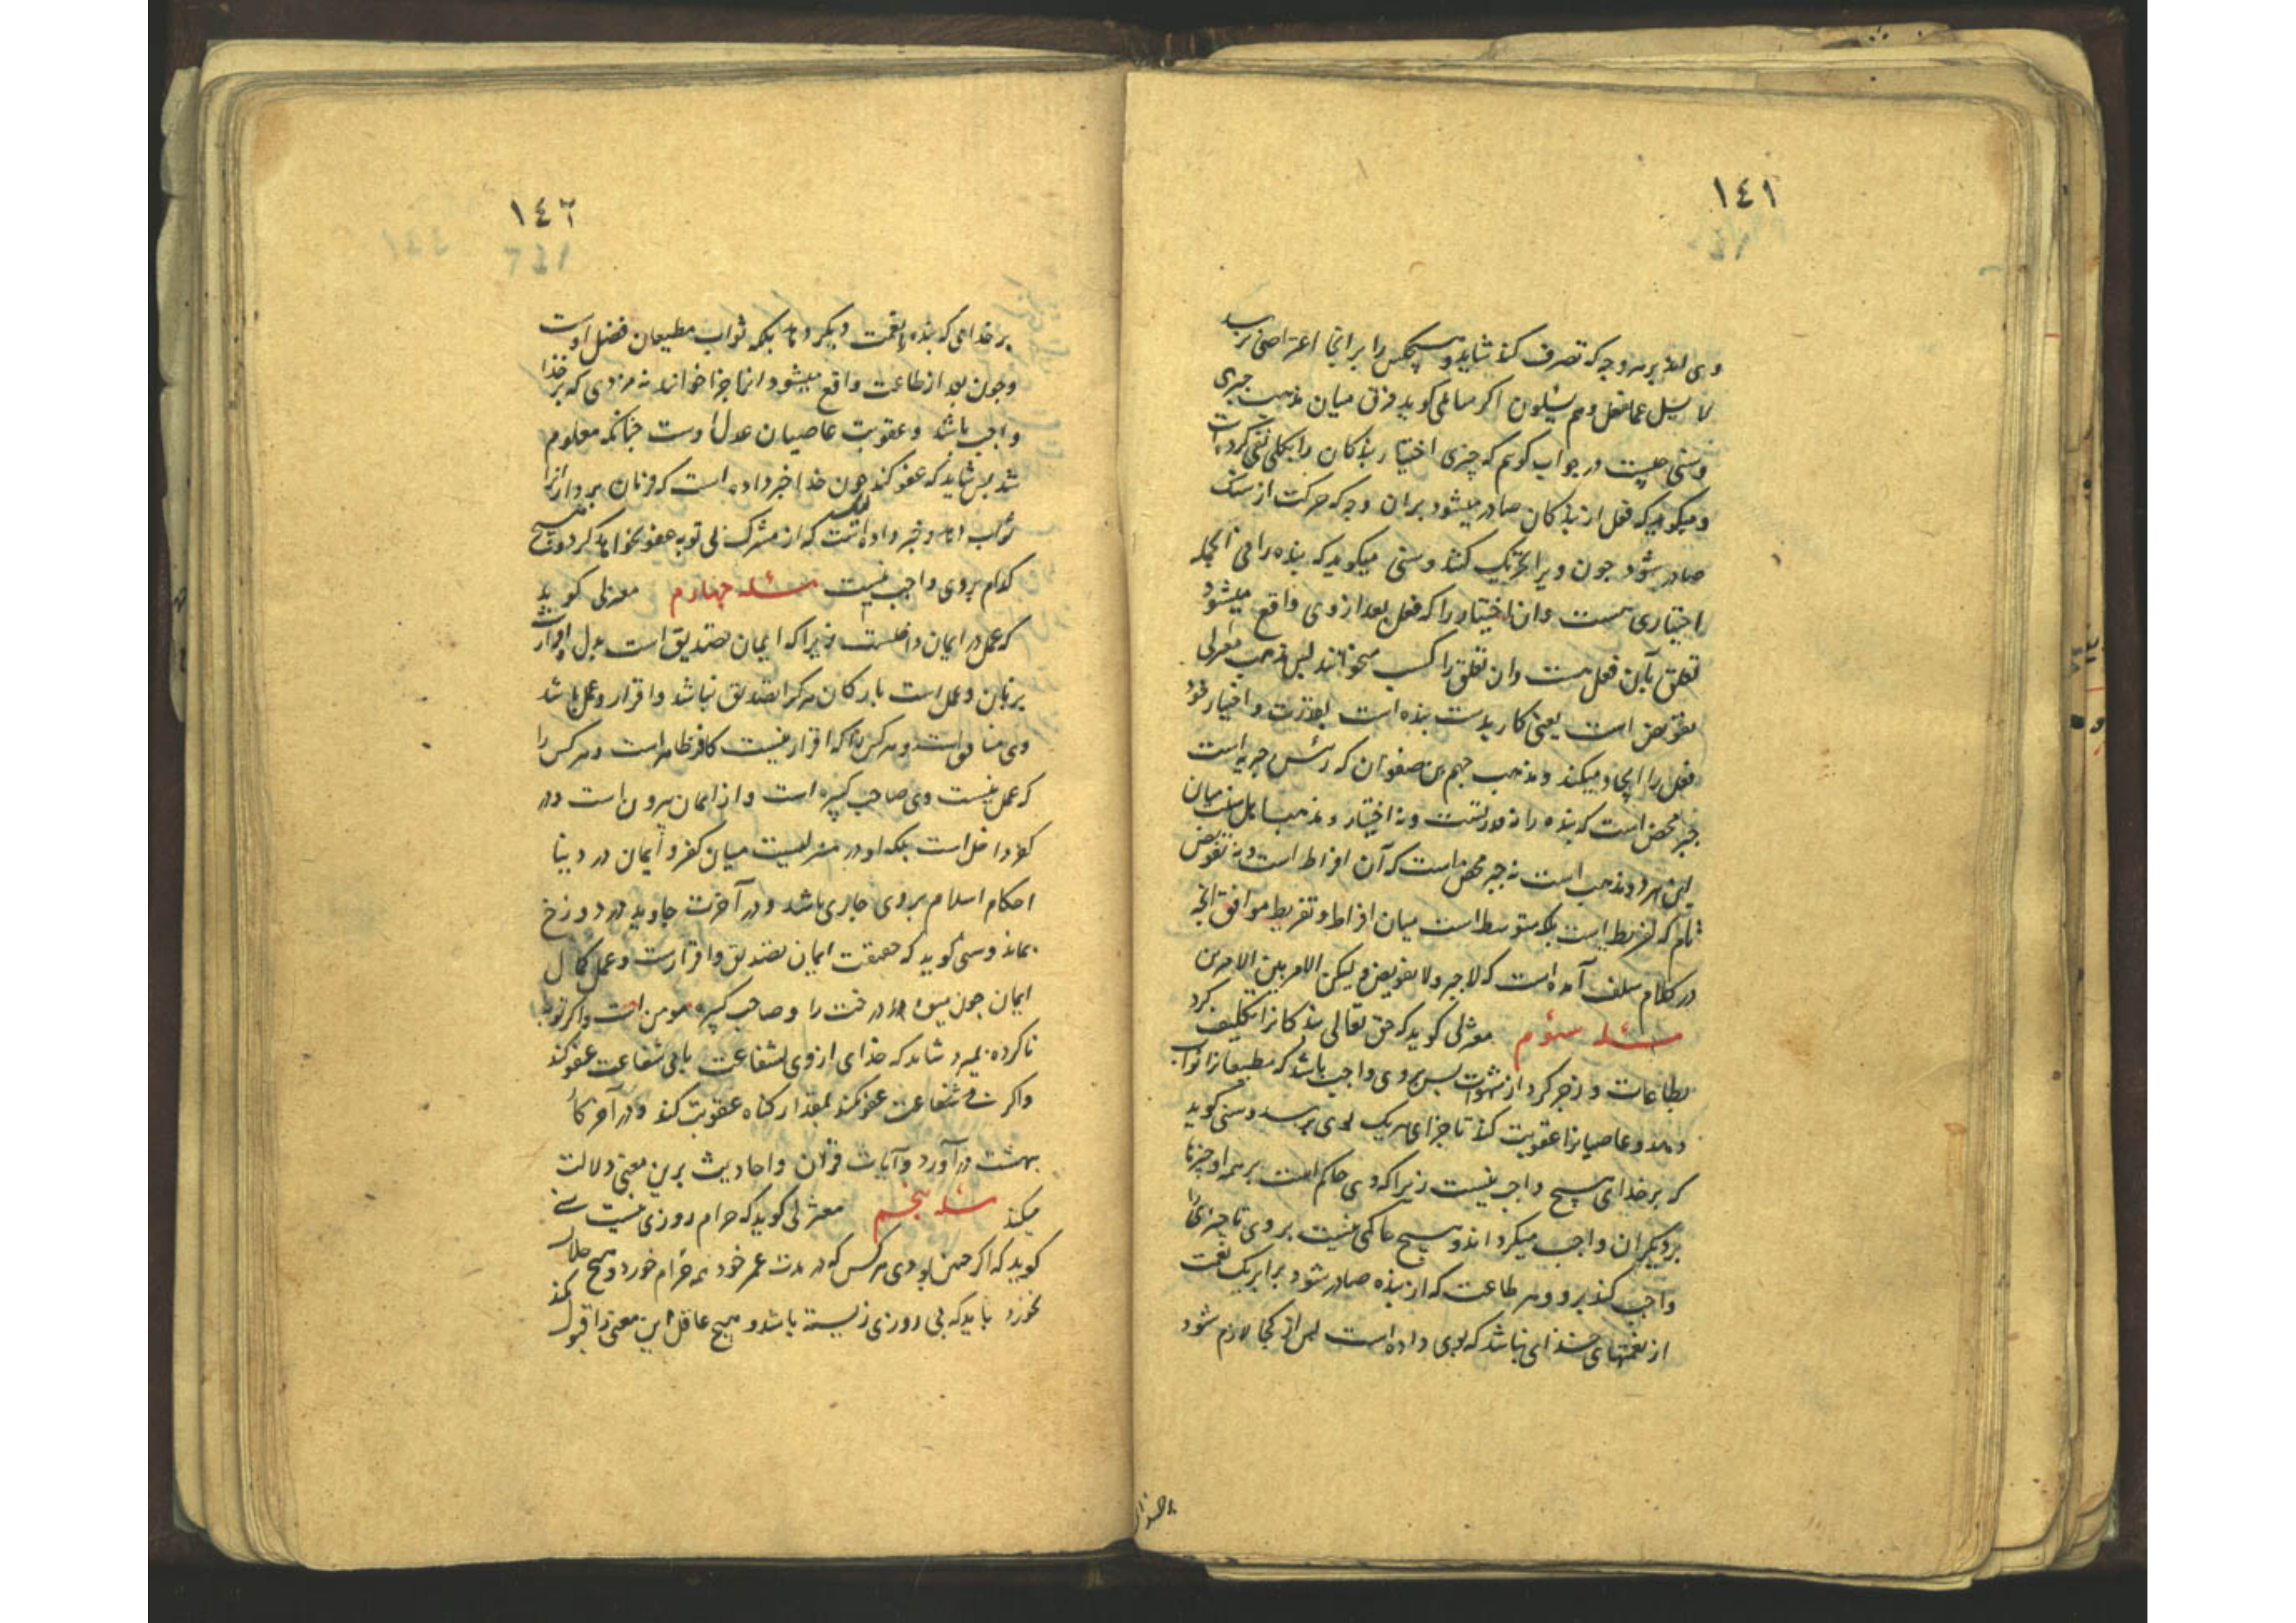 ١٤١
وی اند بر هر وجه که تصرف کند شاید و هیچکس را بر آنجا اعتراضی نرسد
لا یسئل عما یفعل و هم یسئلون اکر سائلی کوید فرق میان مذهب جبری
و سنی چیست در جواب کوئیم که جبری اختیار بندکان را بکلی نفی کرده است
و میکوید که فعل از بندکان صادر میشود بران وجه که حرکت از سنک
صادر شود چون ویرا تحریک کنند و سنی میکوید که بنده را فی الجمله
اختیاری هست و ان اختیار را که فعل بعد از وی واقع میشود
تعلق باین فعل هست و ان تعلق را کسب میخوانند پس مذهب معتزلی
تفویض است یعنی کار بدست بنده است بقدرت و اختیار خود
فعل را ایجاد میکند و مذهب جهم بن صفوان که رئیس جبریه است
جبر محض است که بنده را نه قدرتست و نه اختیار و مذهب اهل سنت میان
این هر دو مذهب است نه جبر محض است که آن افراط است و نه تفویض
تام که تفریط است بلکه متوسط است میان افراط و تفریط موافق آنچه
در کلام سلف آمده است که لا جبر و لا تفویض و لیکن الامر بین الامرین
مسئله سؤم معتزلی کوید که حق تعالی بندکانرا تکلیف کرد
بطاعات و زجر کرد از شهوات پس بر وی واجب باشد که مطیعانرا ثواب
دهد و عاصیانرا عقوبت کند تا جزای هر یک بوی برسد و سنی کوید
که بر خدای هیچ واجب نیست زیرا که وی حاکم است بر همه او چیزها
بر دیکران واجب میکرداند و هیچ حاکمی نیست بر وی تا چیزی
واجب کند برو و هر طاعت که از بنده صادر شود برابر یک نعمت
از نعمتهای خدای نباشد که بوی داده است پس از کجا لازم شود
بر خدای
١٤٢
بر خدای که بنده را نعمت دیکر دهد بلکه ثواب مطیعان فضل اوست
و چون بعد از طاعت واقع میشود انرا جزا خوانند نه مزدی که بر خدا
واجب باشد و عقوبت عاصیان عدل اوست چنانکه معلوم
شد پس شاید که عفو کند لیکن چون خدا خبر داده است که فرمان بردارانرا
ثواب دهد و خبر داده است که از مشرک بی توبه عفو نخواهد کرد و هیچ
کدام بروی واجب نیست مسئله چهارم معتزلی کوید
که عمل در ایمان داخلست زیرا که ایمان تصدیق است بدل و اقرارست
بزبان و عمل است بارکان هر کرا تصدیق نباشد و اقرار و عمل باشد
وی منافق است و هر کس را که اقرار نیست کافر ظاهر است و هر کس را
که عمل نیست وی صاحب کبیره است و از ایمان بیرون است و در
کفر داخل است بلکه او در منزلیست میان کفر و ایمان در دنیا
احکام اسلام بر وی جاری باشد و در آخرت جاوید در دوزخ
بماند و سنی کوید که حقیقت ایمان تصدیق و اقرارست و عمل کمال
ایمان چون میوه مر درخت را و صاحب کبیره مومن است و اکر توبه
ناکرده بمیرد شاید که خدای از وی بشفاعت یا بی شفاعت عفو کند
و اکر شفاعت عفو نکند بمقدار کناه عقوبت کند و در آخر کار
بهشت در آورد و آیات قرآن و احادیث برین معنی دلالت
میکند مسئله پنجم معتزلی کوید که حرام روزی نیست سنی
کوید که اکر چنین بودی هر کس که در مدت عمر خود همه حرام خورد و هیچ حلال
نخورد باید که بی روزی زیسته باشد و هیچ عاقل این معنی را قبول نکند